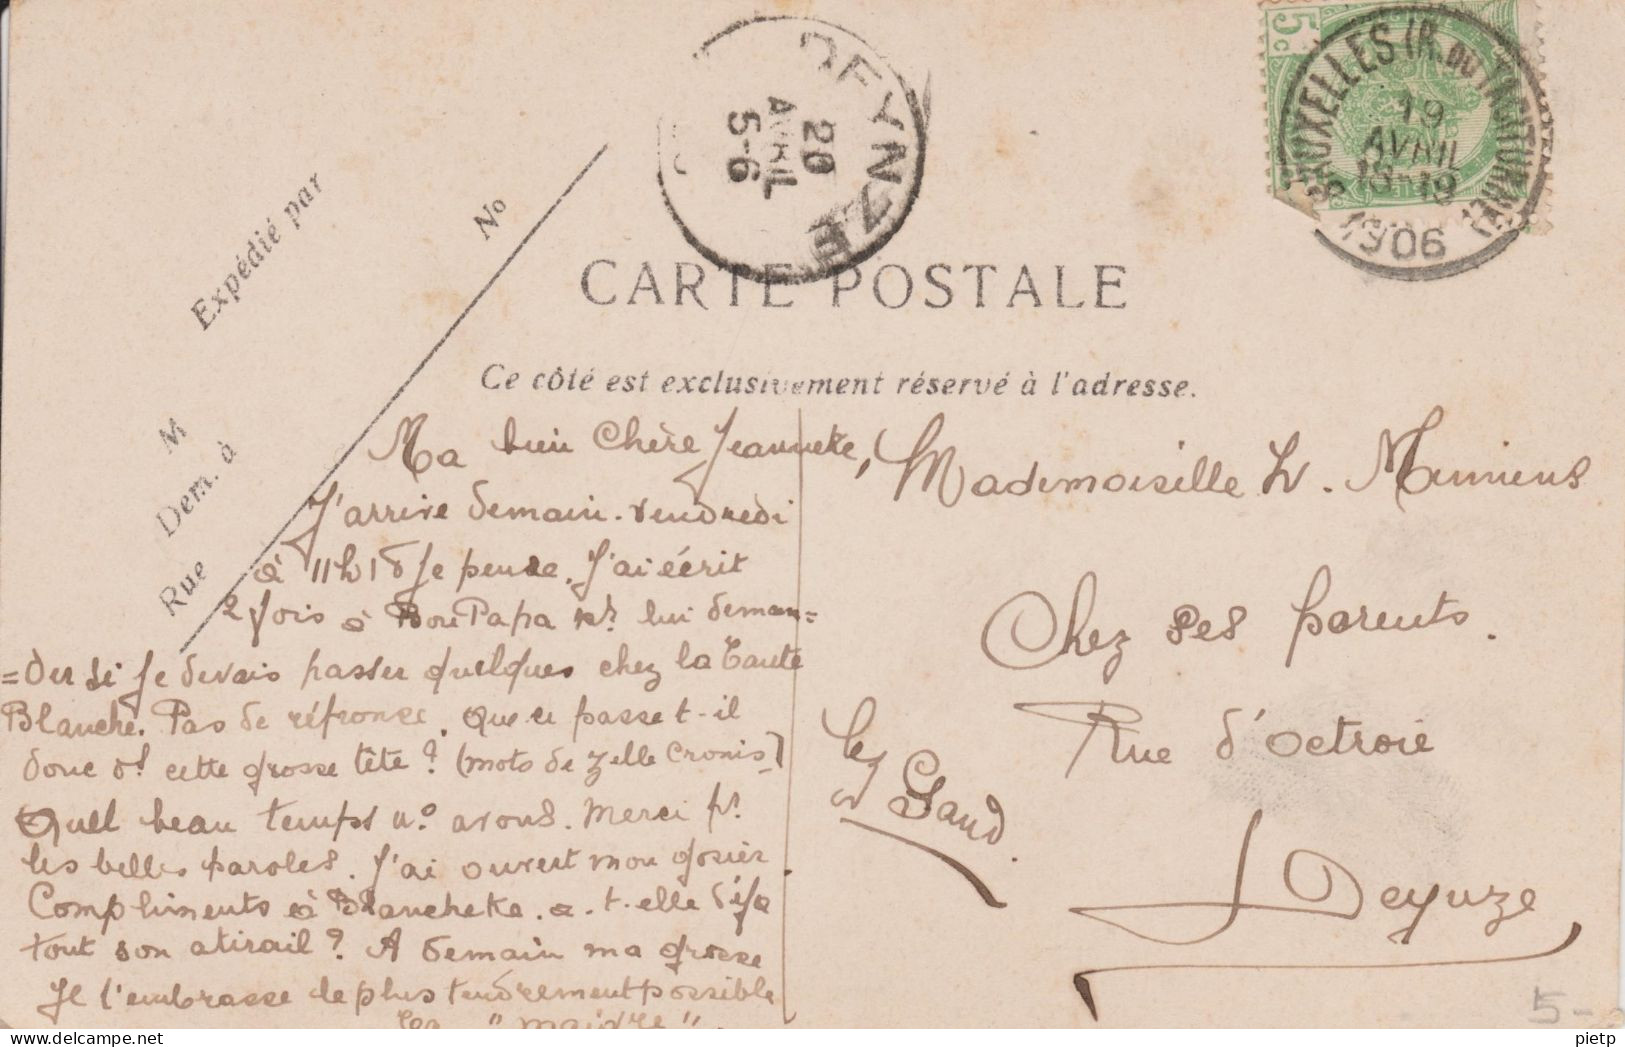 5 c
BRUXELLES (R. DU
19
AVRIL
18-19
1906
DEYNZE
20
AVRIL
5-6
Expédié par
No
CARTE POSTALE
Ce côté est exclusivement réservé à l'adresse.
M
Dem. à
Rue
Ma bien Chère Jeanneke,
J'arrive demain. vendredi
à 11h18 je pense. J'ai écrit
2 fois à Bon Papa pr. lui deman=
=der si je devais passer quelques chez la Tante
Blanche. Pas de réfronse. Que se passe t-il
donc ds cette grosse tête? (mots de Zelle Cronis)
Quel beau temps ns. avons. Merci pr.
les belles paroles. J'ai ouvert mon gosier.
Compliments à Blancheke. a-t-elle déjà
tout son atirail? A demain ma grosse
Je t'embrasse le plus tendrement possible
"
Mademoiselle
Chez ses parents.
Rue d'Octroie
lez
Gand.
Deynze
5-
pietp